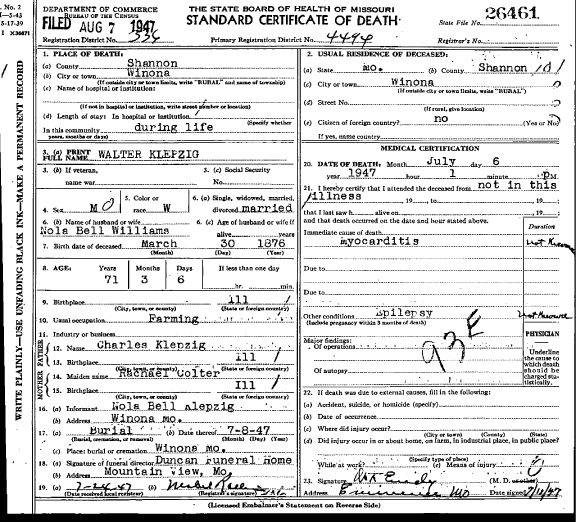 No. 2
5-43
5-17-39
I X36671
WRITE PLAINLY—USE UNFADING BLACK INK—MAKE A PERMANENT RECORD
DEPARTMENT OF COMMERCE
BUREAU OF THE CENSUS
THE STATE BOARD OF HEALTH OF MISSOURI
STANDARD CERTIFICATE OF DEATH
26461
State File No.
FILED AUG 7 1947
Registration District No. 336
Primary Registration District No. 4494
Registrar's No.
1. PLACE OF DEATH:
(a) County Shannon
(b) City or town Winona
(If outside city or town limits, write "RURAL" and name of township)
(c) Name of hospital or institution:
(If not in hospital or institution, write street number or location)
(d) Length of stay: In hospital or institution
(Specify whether
In this community during life
years, months or days)
3. (a) PRINT FULL NAME WALTER KLEPZIG
3. (b) If veteran, name war
3. (c) Social Security No.
4. Sex M
5. Color or race W
6. (a) Single, widowed, married, divorced married
6. (b) Name of husband or wife
Nola Bell Williams
6. (c) Age of husband or wife if alive years
7. Birth date of deceased March 30 1876
(Month) (Day) (Year)
8. AGE: Years Months Days If less than one day
71 3 6 hr. min.
9. Birthplace Ill
(City, town, or county) (State or foreign country)
10. Usual occupation Farming
11. Industry or business
FATHER
12. Name Charles Klepzig
13. Birthplace Ill
(City, town, or county) (State or foreign country)
MOTHER
14. Maiden name Rachael Colter
15. Birthplace Ill
(City, town, or county) (State or foreign country)
16. (a) Informant Nola Bell Klepzig
(b) Address Winona mo.
17. (a) Burial (b) Date thereof 7-8-47
(Burial, cremation, or removal) (Month) (Day) (Year)
(c) Place: burial or cremation Winona mo.
18. (a) Signature of funeral director Duncan Funeral Home
(b) Address Mountain View, Mo.
19. (a) 7-24-47 (b)
(Date received local registrar) (Registrar's signature)
2. USUAL RESIDENCE OF DECEASED:
(a) State mo. (b) County Shannon 101
(c) City or town Winona
(If outside city or town limits, write "RURAL")
(d) Street No.
(If rural, give location)
(e) Citizen of foreign country? no (Yes or No)
If yes, name country
MEDICAL CERTIFICATION
20. DATE OF DEATH: Month July day 6
year 1947 hour 1 minute P M.
21. I hereby certify that I attended the deceased from not in this
illness, 19 , to , 19 ;
that I last saw h alive on , 19 ;
and that death occurred on the date and hour stated above.
Duration
Immediate cause of death
myocarditis
not Known
Due to
Due to
Other conditions Epilepsy
not known
(Include pregnancy within 3 months of death)
PHYSICIAN
Major findings:
Of operations
93E
Of autopsy
Underline the cause to which death should be charged statistically.
22. If death was due to external causes, fill in the following:
(a) Accident, suicide, or homicide (specify)
(b) Date of occurrence
(c) Where did injury occur?
(City or town) (County) (State)
(d) Did injury occur in or about home, on farm, in industrial place, in public place?
(Specify type of place)
While at work? (e) Means of injury
23. Signature (M. D. or other)
Address Eminence Mo Date signed
(Licensed Embalmer's Statement on Reverse Side)